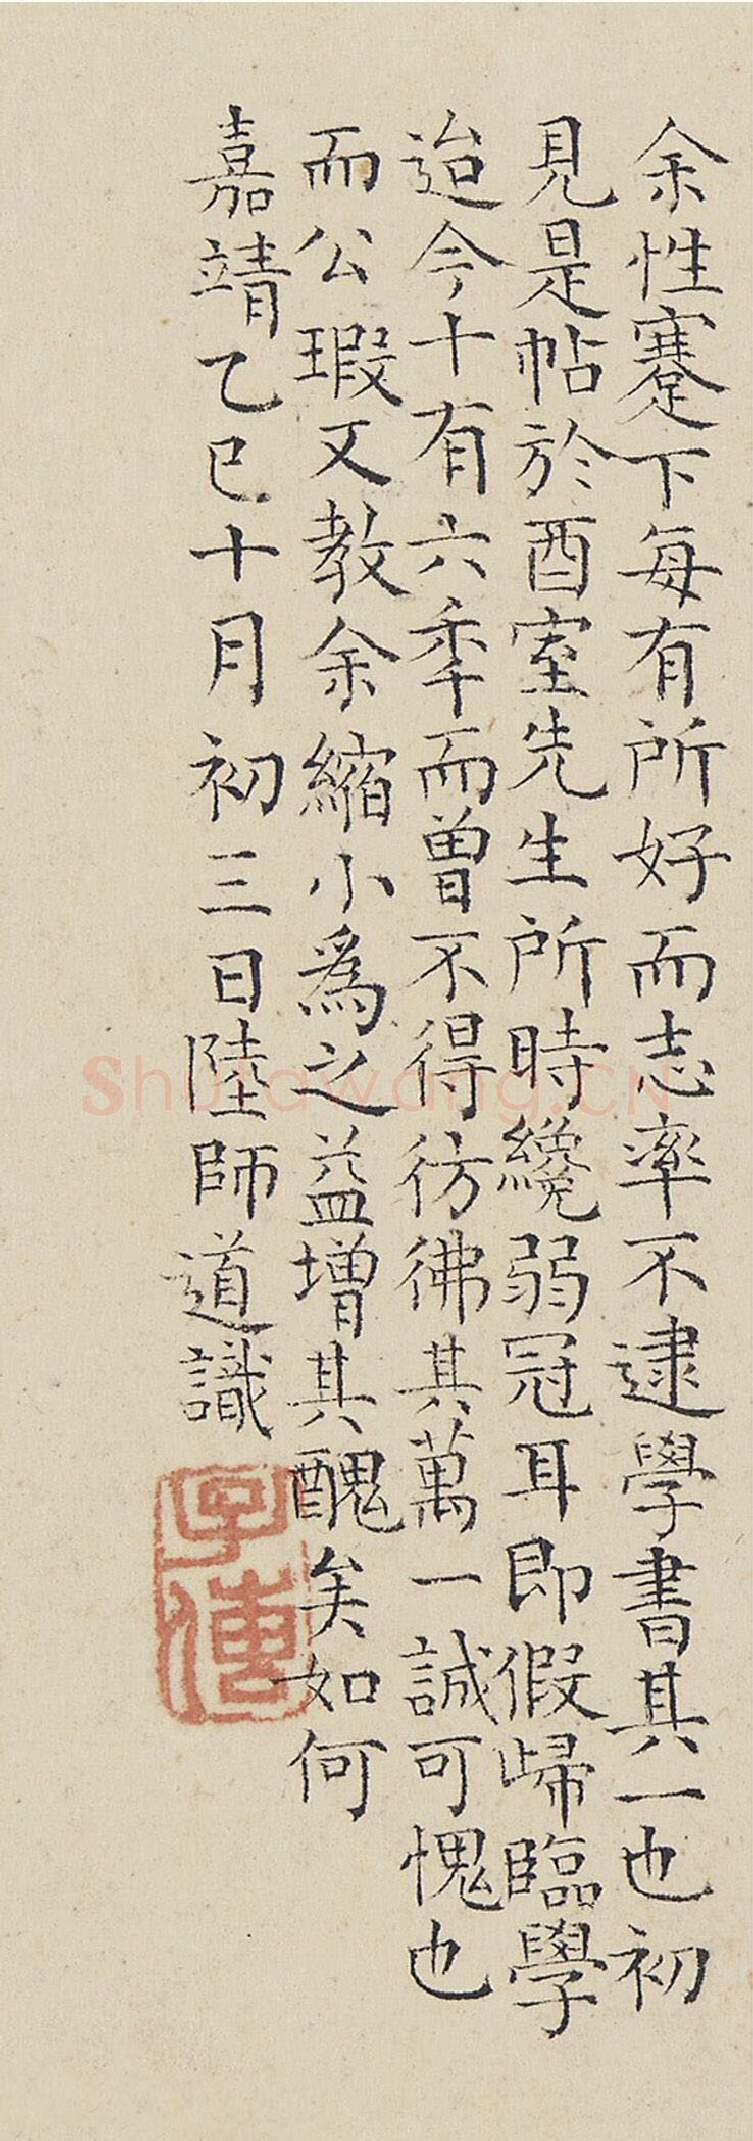 余性蹇下每有所好而志率不逮學書其一也初
見是帖於酉室先生所時纔弱冠耳即假歸臨學
迨今十有六秊而曾不得彷彿其萬一誠可愧也
而公瑕又教余縮小爲之益增其醜矣如何
嘉靖乙巳十月初三日陸師道識
子傳